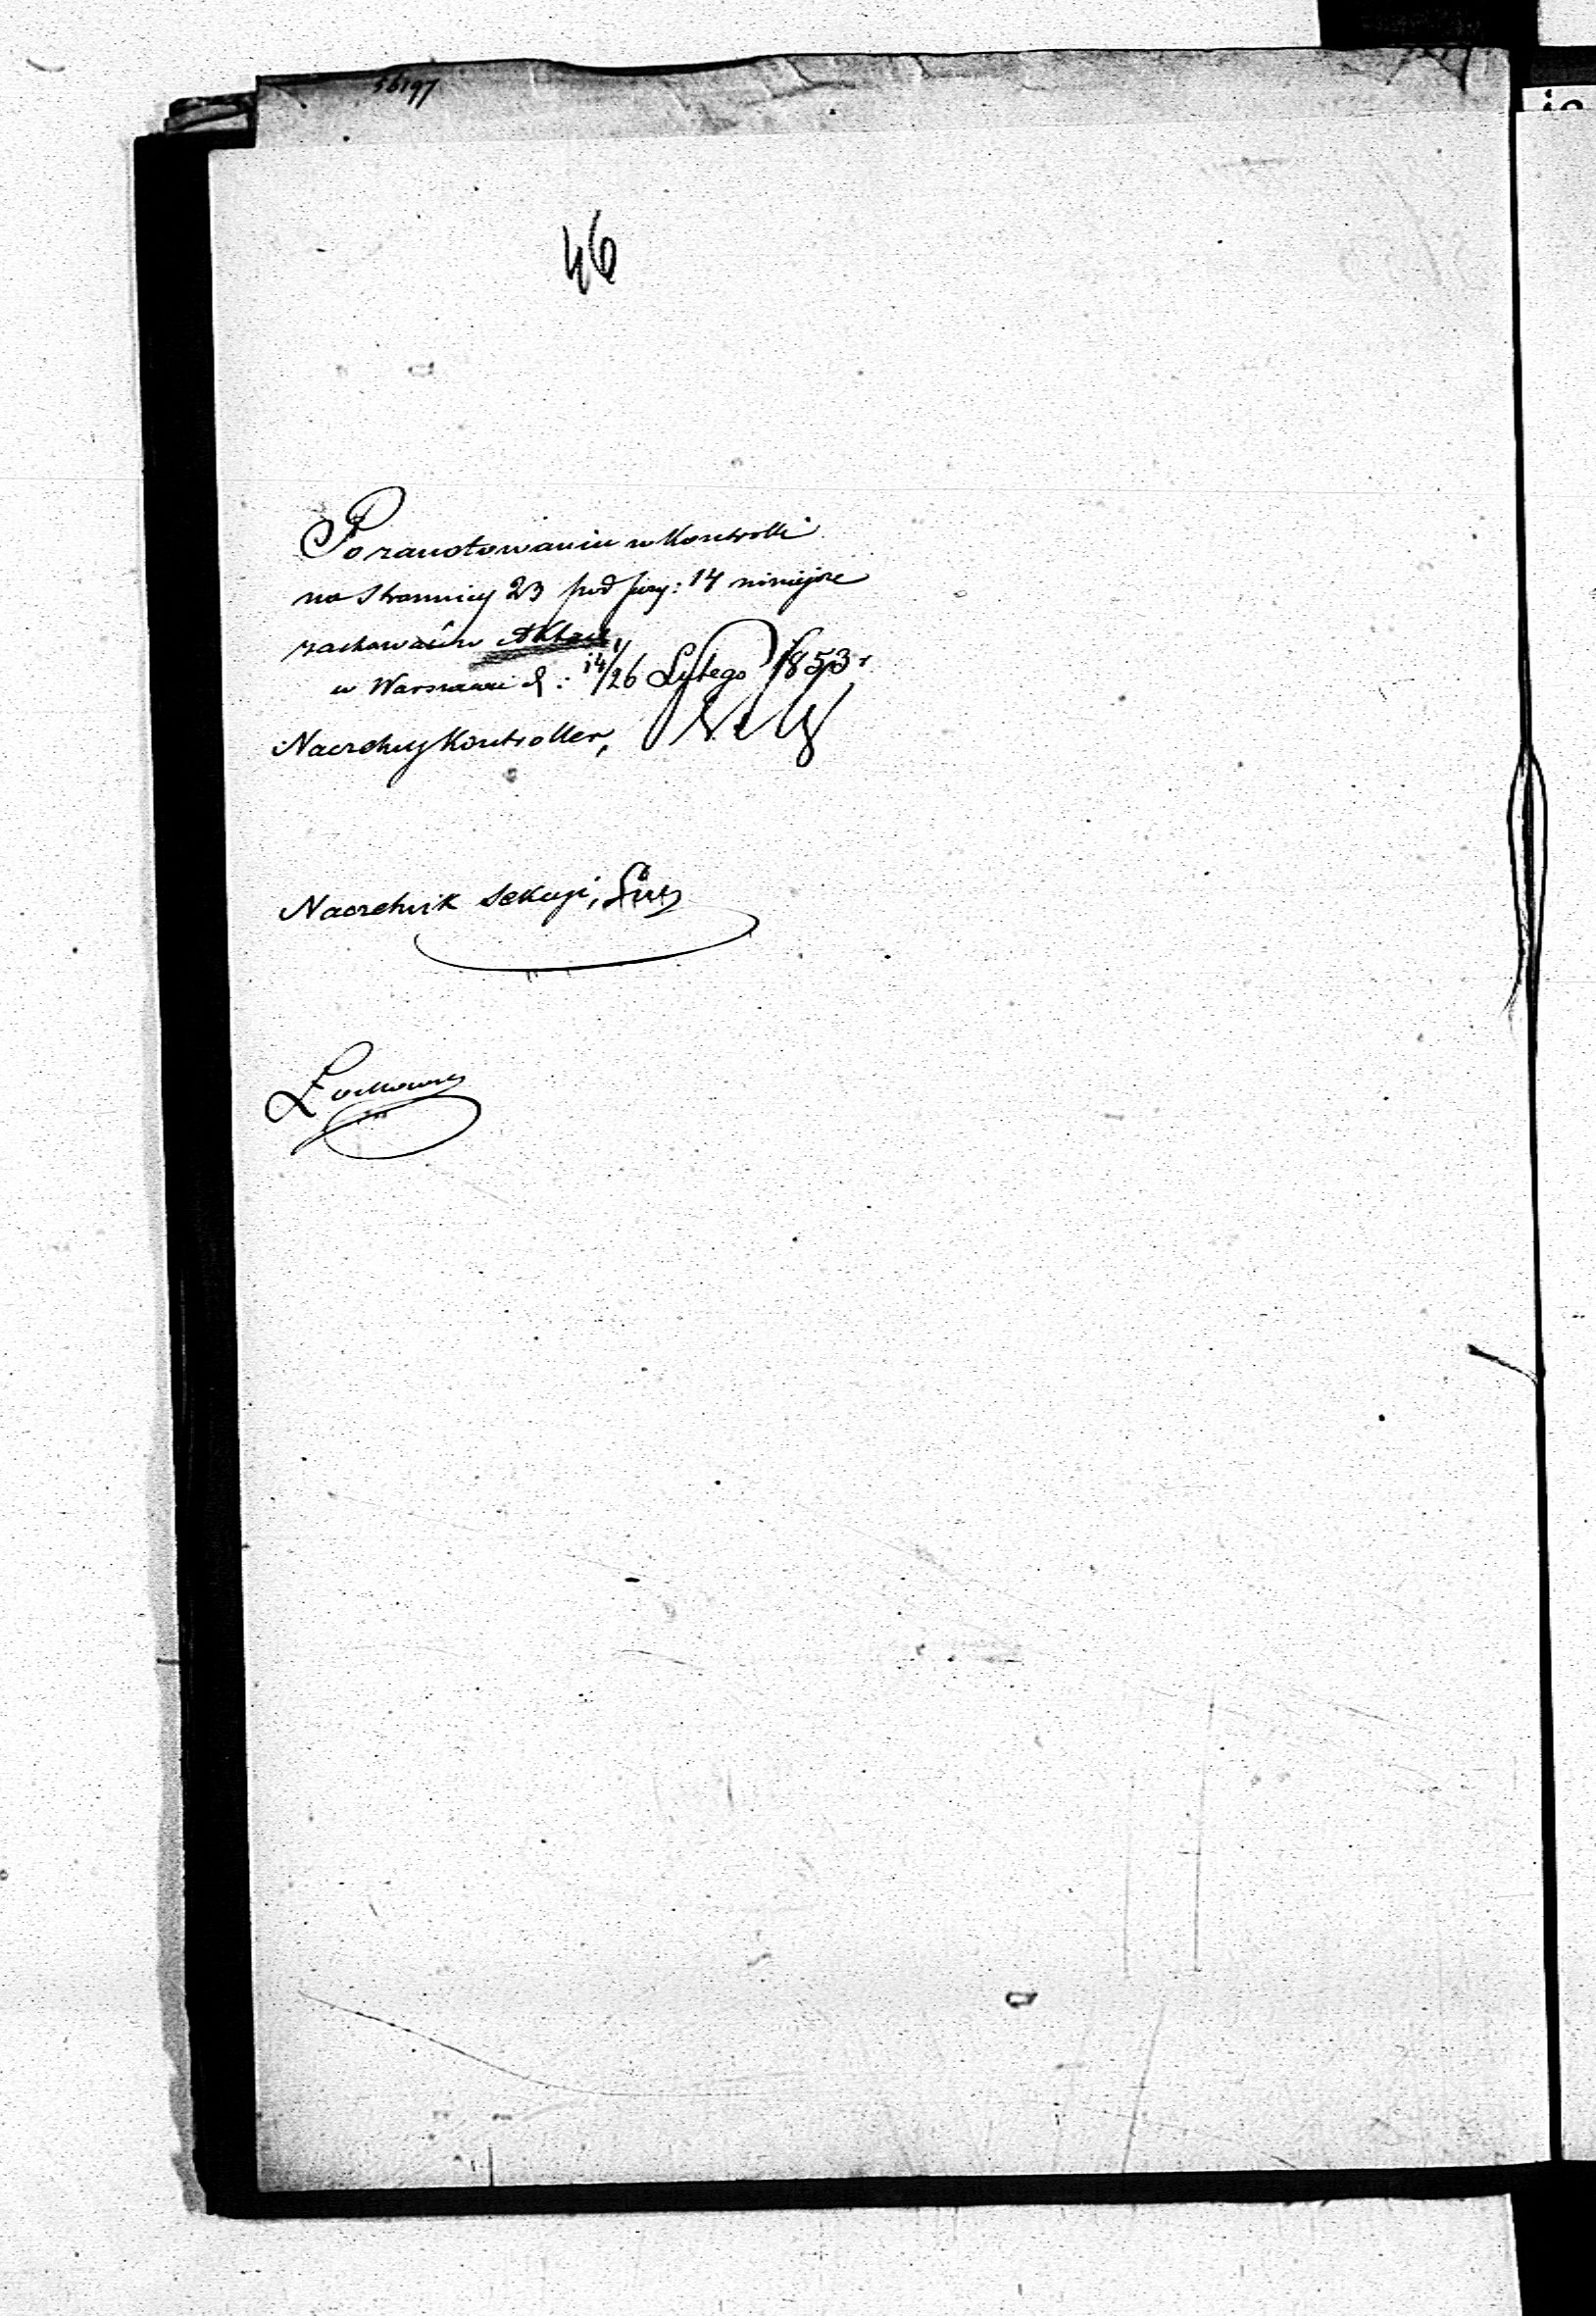 56197
46
Po zanotowaniu w Kontrolli
na Stronnicy 23 pod pozy: 14 niniejsze
zachować w Aktach
w Warszawie d: 14/26 Lutego 1853 r
Naczelny Kontroller,
Naczelnik Sekcyi,